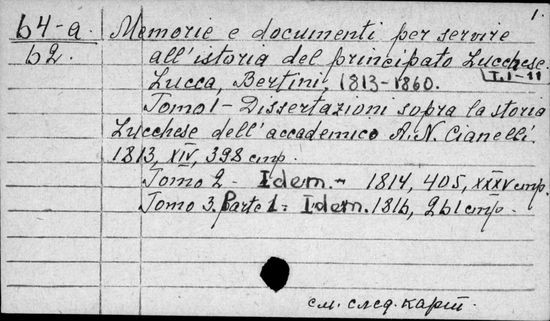 1.
64-a Memorie e documenti per servire
62. all'istoria del principato Lucchese.
Lucca, Bertini, 1813-1860. T. 1-11
Tomo 1 - Dissertazioni sopra la storia
Lucchese dell'accademico A. N. Cianelli.
1813, XIV, 398 стр.
Tomo 2 - Idem. - 1814, 405, XXXV стр.
Tomo 3. Parte 1 - Idem. 1816, 261 стр.
см. след. карт